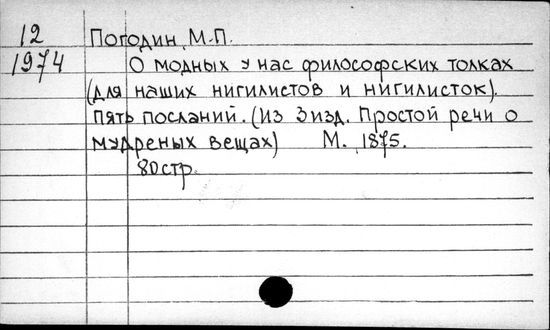 12 Погодин, М.П.
1974 О модных у нас философских толках
(для наших нигилистов и нигилисток).
Пять посланий. (Из 3 изд. Простой речи о
мудреных вещах) М., 1875.
80 стр.